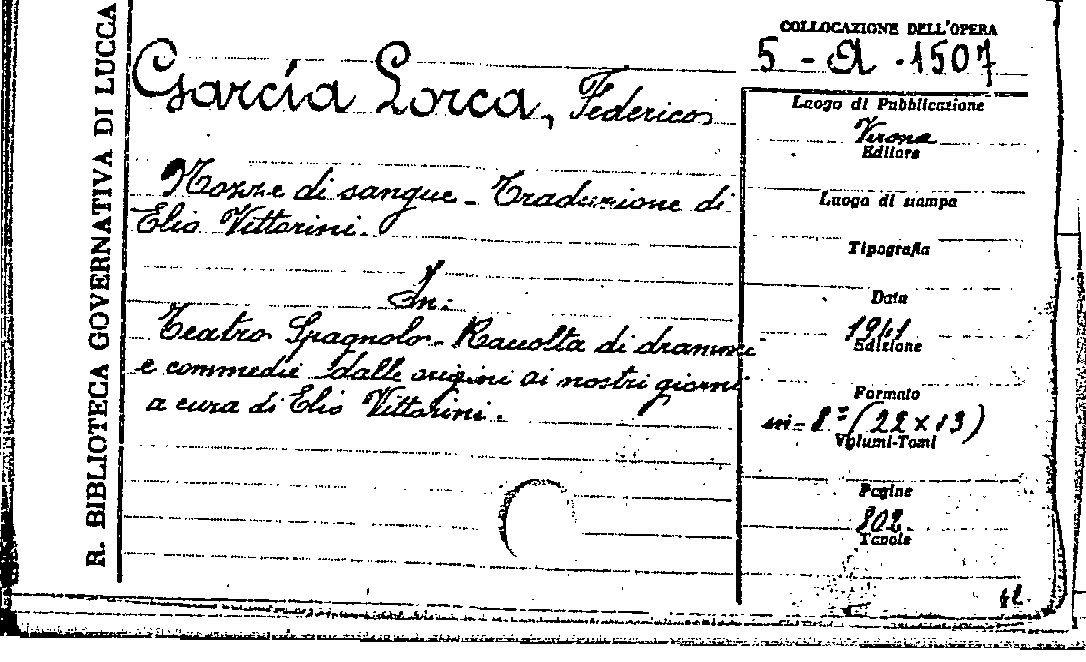 R. BIBLIOTECA GOVERNATIVA DI LUCCA
COLLOCAZIONE DELL'OPERA
5 - A . 1507
García Lorca, Federico
Nozze di sangue - Traduzione di
Elio Vittorini.
In:
Teatro Spagnolo - Raccolta di drammi
e commedie dalle origini ai nostri giorni
a cura di Elio Vittorini.
Luogo di Pubblicazione
Verona
Editore
Luogo di stampa
Tipografia
Data
1941
Edizione
Formato
in-8º (22 x 13)
Volumi-Tomi
Pagine
802.
Tavole